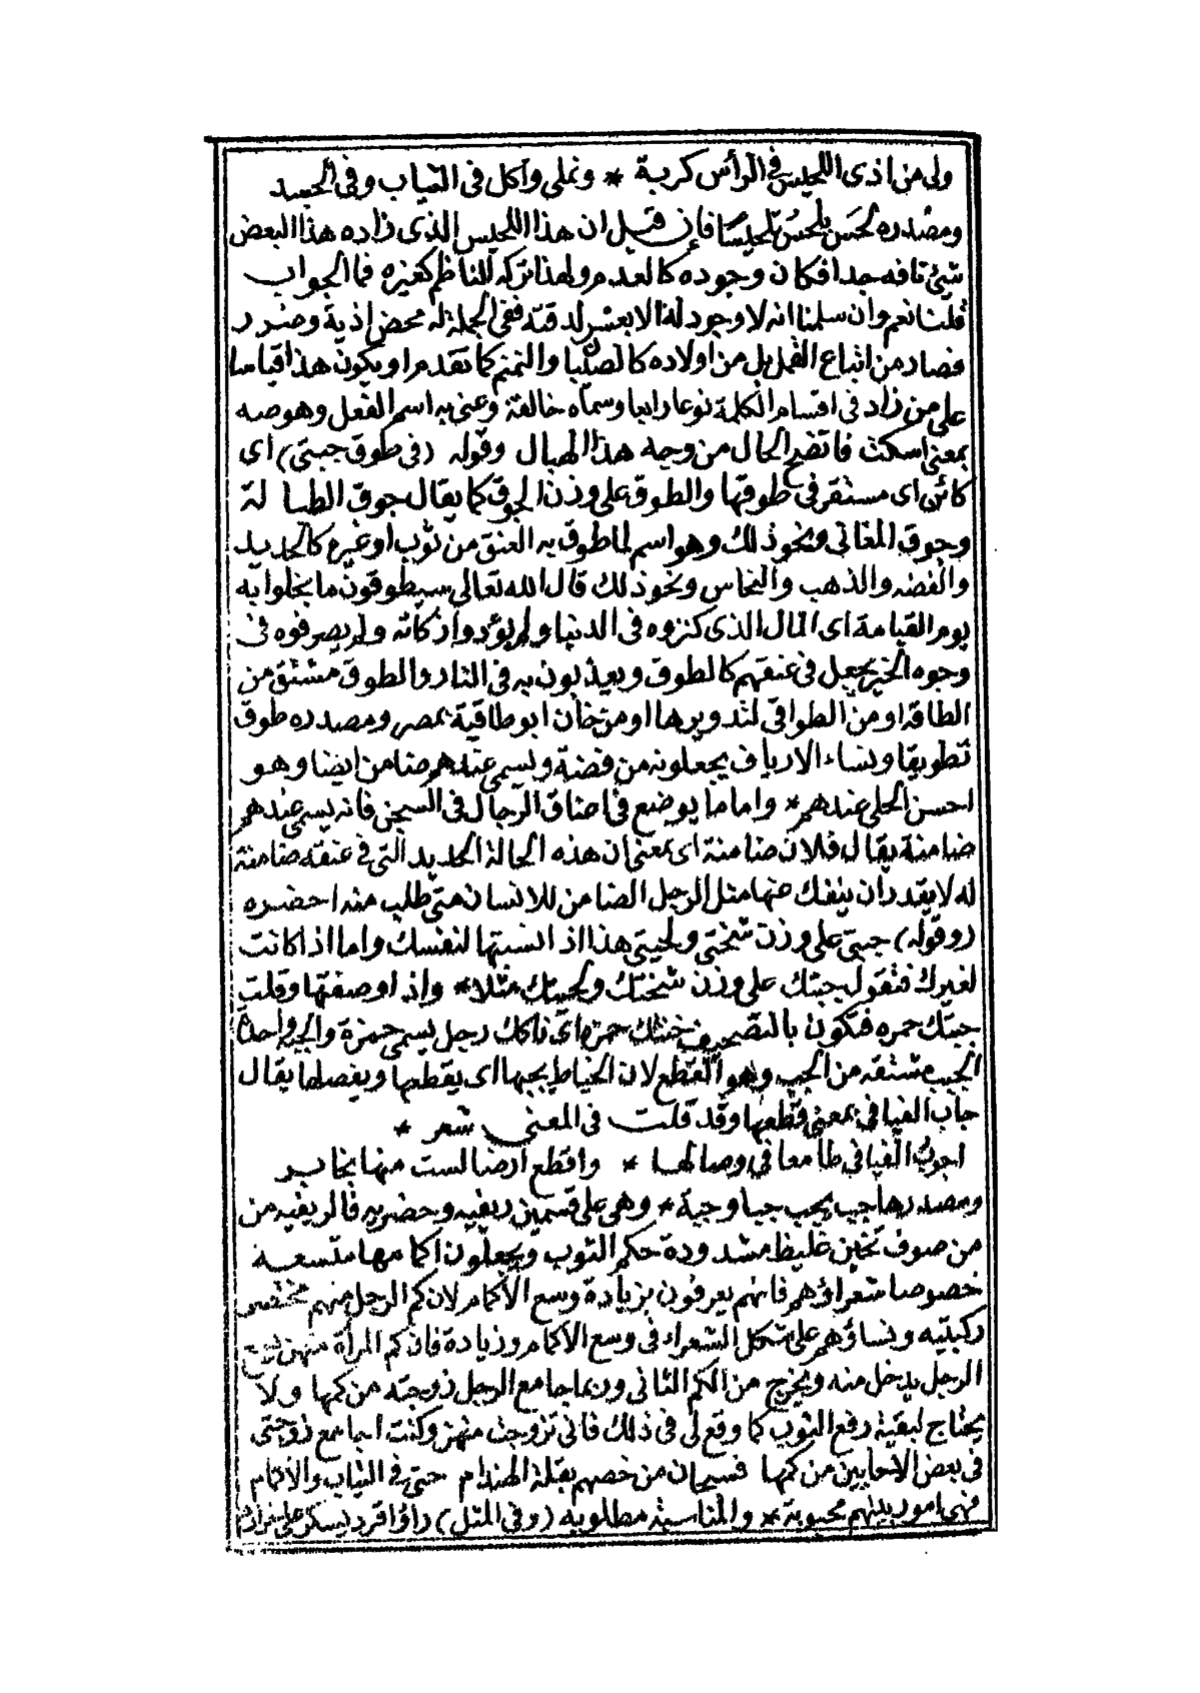 ولى من اذى اللحليس فى الرأس كربة * ونملى واكل فى الثياب وفى الجسد
ومصدره لحَس يلحسُ تلحيسًا فإن قيل ان هذا اللحيس الذى زاده هذا البعض
شئ تافه جدا فكان وجوده كالعدم ولهذا تركه الناظم كغيره فما الجواب
قلنا نعم وان سلمنا انه لا وجود له الا بعسر لدقته ففى الجملة له محض اذية وضرر
فصار من اتباع القمل بل من اولاده كالصيبان والنمنم كما تقدم او يكون هذا قياسا
على من زاد فى اقسام الكلمة نوعا رابعا وسماه خالفة وعنى به اسم الفعل وهو صه
بمعنى اسكت فاتضح الحال من وجه هذا الهبال وقوله (فى طوق جبتى) اى
كائن اى مستقر فى طوقها والطوق على وزن الجوق كما يقال جوق الطبالة
وجوق المغانى ونحو ذلك وهو اسم لما طوق به العنق من ثوب او غيره كالحديد
والفضه والذهب والنحاس ونحو ذلك قال الله تعالى سيطوقون ما بخلوا به
يوم القيامة اى المال الذى كنزوه فى الدنيا ولم يؤدوا زكاته ولم يصرفوه فى
وجوه الخير يجعل فى عنقهم كالطوق ويعذبون به فى النار والطوق مشتق من
الطاقه او من الطواقى لتدويرها او من خان ابو طاقية بمصر ومصدره طوق
تطويقا ونساء الارياف يجعلونه من فضة ويسمى عندهم ضامن ايضا وهو
احسن الحلى عندهم * واما ما يوضع فى اعناق الرجال فى السجن فانه يسمى عندهم
ضامنة يقال فلان ضامنة اى بمعنى ان هذه الحالة الحديد التى فى عنقه ضامنة
له لا يقدر ان ينفك عنها مثل الرجل الضامن للانسان متى طلب منه احضره
(وقوله) جبتى على وزن شختى ولحيتى هذا اذا نسبتها لنفسك واما اذا كانت
لغيرك فتقول جبتك على وزن شختك ولحيتك مثلا * واذا وصفتها وقلت
جبتك حمره فتكون بالتصحيف خنتك حمزه اى ناكك رجل يسمى حمزة والجبه واحدة
الجبب مشتقه من الجب وهو القطع لان الخياط يجبها اى يقطعها ويفصلها يقال
جاب الفيافى بمعنى قطعها وقد قلت فى المعنى شعر *
اجوب الفيافى طامعا فى وصالها * واقطع ارضا لست منها بخابر
ومصدرها جب يجب جبا وجبة * وهى على قسمين ريفيه وحضريه فالريفيه من
من صوف تخين غليظ مشدودة حكم الثوب ويجعلون اكمامها متسعه
خصوصا شعراؤهم فانهم يعرفون بزيادة وسع الاكمام لان كم الرجل منهم
ركبتيه ونساؤهم على شكل الشعراء فى وسع الاكمام وزيادة فان كم المرأة منهن يسع
الرجل يدخل منه ويخرج من الكم الثانى وربما جامع الرجل زوجته من كمها ولا
يحتاج لبقية رفع الثوب كما وقع لى فى ذلك فانى تزوجت منهن وكنت اجامع زوجتى
فى بعض الاحايين من كمها فسبحان من خصهم بقلة الهندام حتى فى الثياب والاكمام
فهى امور بينهم محبوبة * والمناسبة مطلوبه (وفى المثل) راؤا قرد يسكر على خرارة